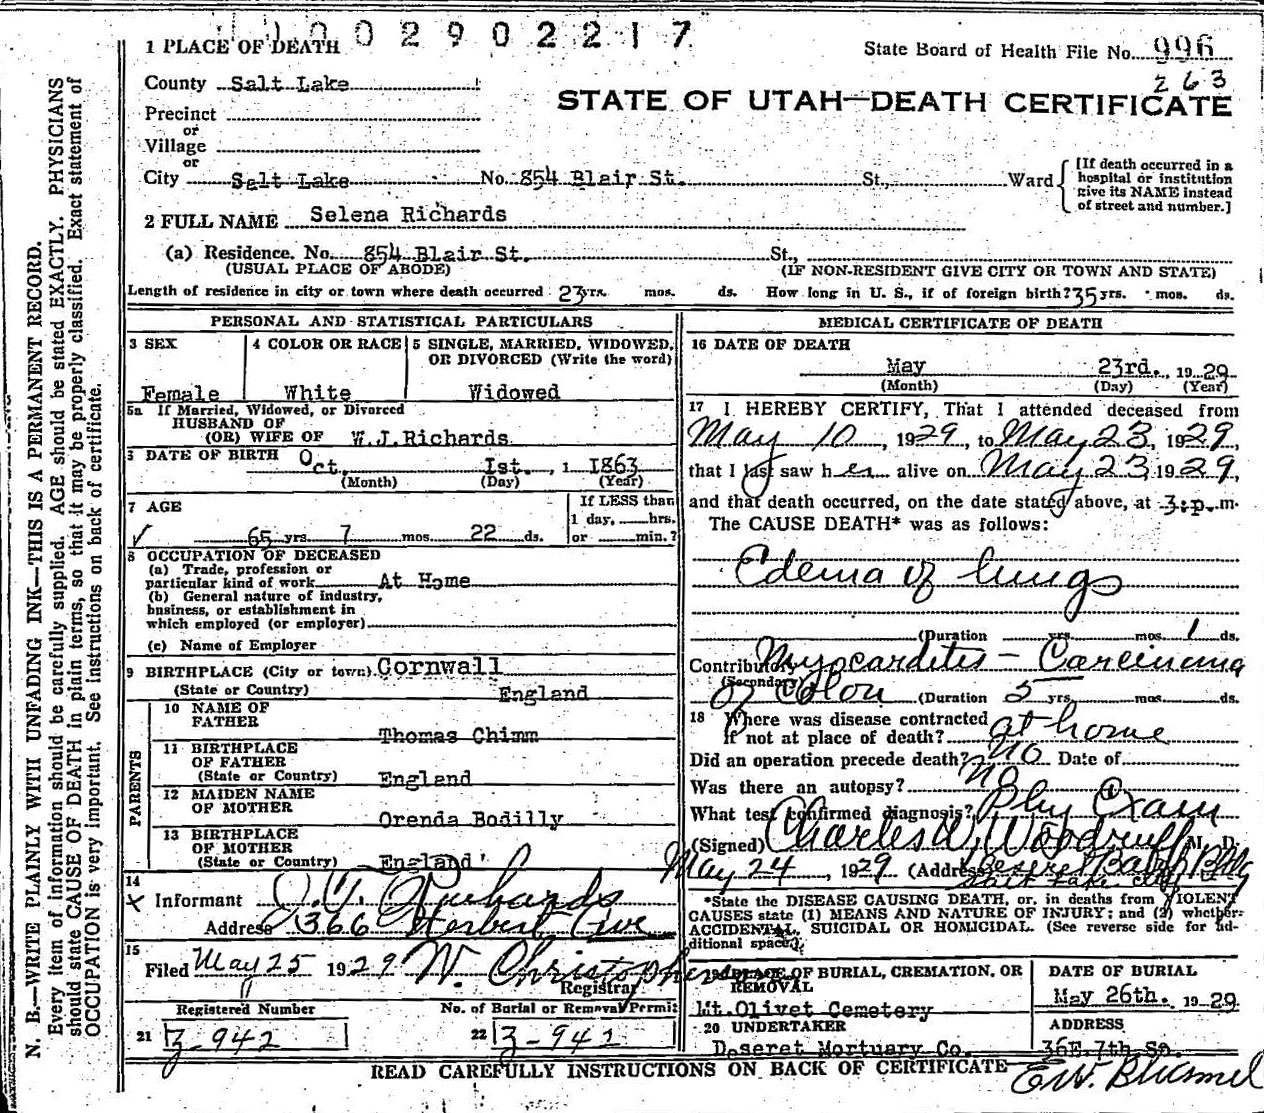 0 0 2 9 0 2 2 1 7
1 PLACE OF DEATH
State Board of Health File No. 996
263
County Salt Lake
STATE OF UTAH—DEATH CERTIFICATE
Precinct
or
Village
or
City Salt Lake No. 854 Blair St. St., Ward
[If death occurred in a
hospital or institution
give its NAME instead
of street and number.]
2 FULL NAME Selena Richards
(a) Residence. No. 854 Blair St. St.,
(USUAL PLACE OF ABODE) (IF NON-RESIDENT GIVE CITY OR TOWN AND STATE)
Length of residence in city or town where death occurred 23 yrs. mos. ds. How long in U. S., if of foreign birth? 35 yrs. mos. ds.
PERSONAL AND STATISTICAL PARTICULARS
3 SEX
Female
4 COLOR OR RACE
White
5 SINGLE, MARRIED, WIDOWED,
OR DIVORCED (Write the word)
Widowed
5a If Married, Widowed, or Divorced
HUSBAND OF
(OR) WIFE OF W.J.Richards
DATE OF BIRTH Oct. 1st., 1 1863
(Month) (Day) (Year)
7 AGE
65 yrs. 7 mos. 22 ds.
If LESS than
1 day, hrs.
or min.?
8 OCCUPATION OF DECEASED
(a) Trade, profession or
particular kind of work At Home
(b) General nature of industry,
business, or establishment in
which employed (or employer)
(c) Name of Employer
9 BIRTHPLACE (City or town) Cornwall
(State or Country) England
PARENTS
10 NAME OF
FATHER Thomas Chimm
11 BIRTHPLACE
OF FATHER
(State or Country) England
12 MAIDEN NAME
OF MOTHER Orenda Bodilly
13 BIRTHPLACE
OF MOTHER
(State or Country) England
14
X Informant J.T. Richards
Address 366 Herbert Ave
15
Filed May 25 1929 W. Christophersen
Registrar
Registered Number
21 Z-942
No. of Burial or Removal Permit
22 Z-942
MEDICAL CERTIFICATE OF DEATH
16 DATE OF DEATH
May 23rd., 1929
(Month) (Day) (Year)
17 I HEREBY CERTIFY, That I attended deceased from
May 10, 1929, to May 23, 1929,
that I last saw her alive on May 23 1929,
and that death occurred, on the date stated above, at 3:p.m.
The CAUSE DEATH* was as follows:
Edema of lungs
(Duration yrs. mos. 1 ds.
Contributory Myocarditis - Carcinoma
(Secondary)
of Colon (Duration 5 yrs. mos. ds.
18 Where was disease contracted
if not at place of death? at home
Did an operation precede death? no Date of
Was there an autopsy? no
What test confirmed diagnosis? Phy Exam
(Signed) Charles W. Woodruff M. D.
May 24, 1929 (Address) Deseret Bank Bldg
Salt Lake City
*State the DISEASE CAUSING DEATH, or, in deaths from VIOLENT
CAUSES state (1) MEANS AND NATURE OF INJURY; and (2) whether
ACCIDENTAL, SUICIDAL OR HOMICIDAL. (See reverse side for ad-
ditional space.)
19 PLACE OF BURIAL, CREMATION, OR
REMOVAL
Mt. Olivet Cemetery
DATE OF BURIAL
May 26th. 1929
20 UNDERTAKER
Deseret Mortuary Co.
ADDRESS
36E. 7th So.
READ CAREFULLY INSTRUCTIONS ON BACK OF CERTIFICATE
N. B.—WRITE PLAINLY WITH UNFADING INK—THIS IS A PERMANENT RECORD.
Every item of information should be carefully supplied. AGE should be stated EXACTLY. PHYSICIANS
should state CAUSE OF DEATH in plain terms, so that it may be properly classified. Exact statement of
OCCUPATION is very important. See instructions on back of certificate.